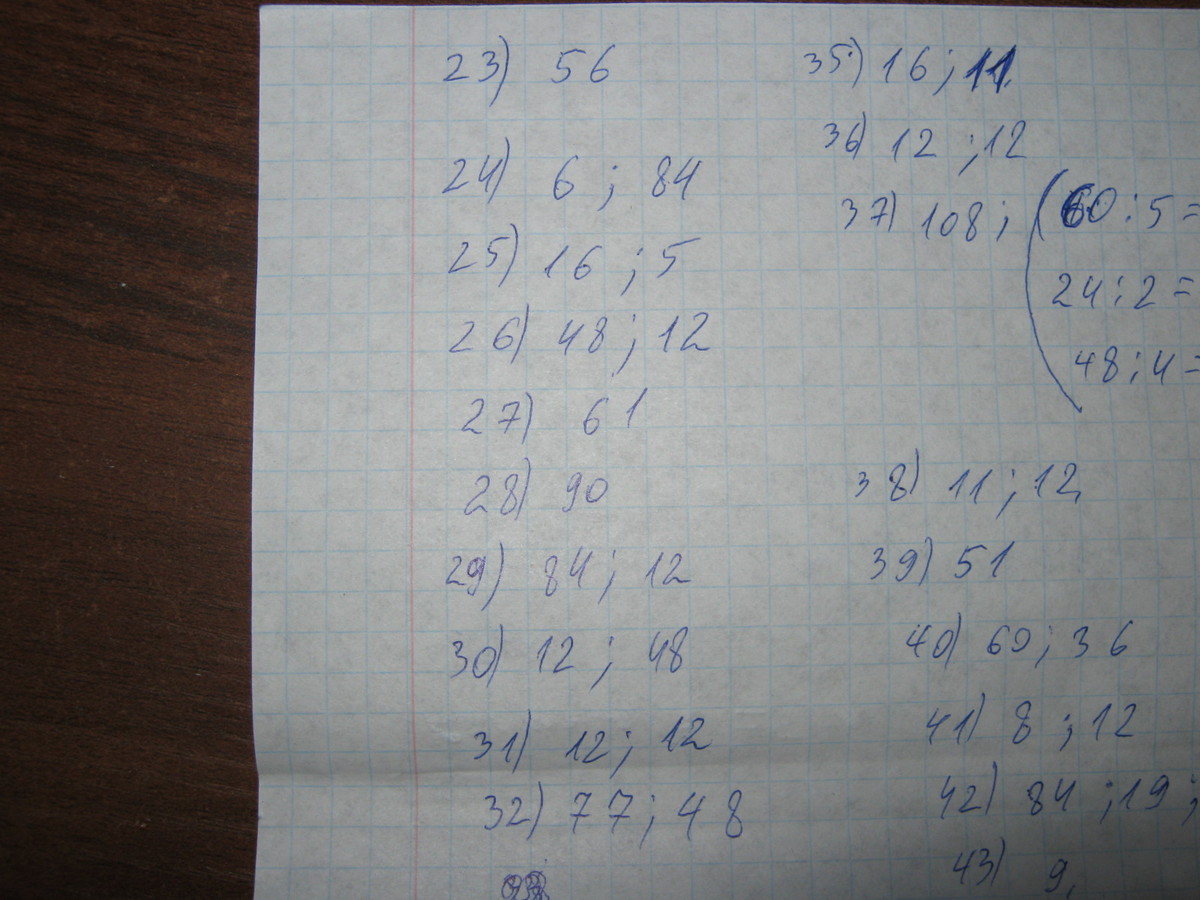 23) 56
24) 6 ; 84
25) 16 ; 5
26) 48 ; 12
27) 61
28) 90
29) 84 ; 12
30) 12 ; 48
31) 12 ; 12
32) 77 ; 48
35) 16 ; 11
36) 12 ; 12
37) 108 ; (60 : 5 =
24 : 2 =
48 : 4 =
38) 11 ; 12
39) 51
40) 60 ; 36
41) 8 ; 12
42) 84 ; 19 ;
43) 9,